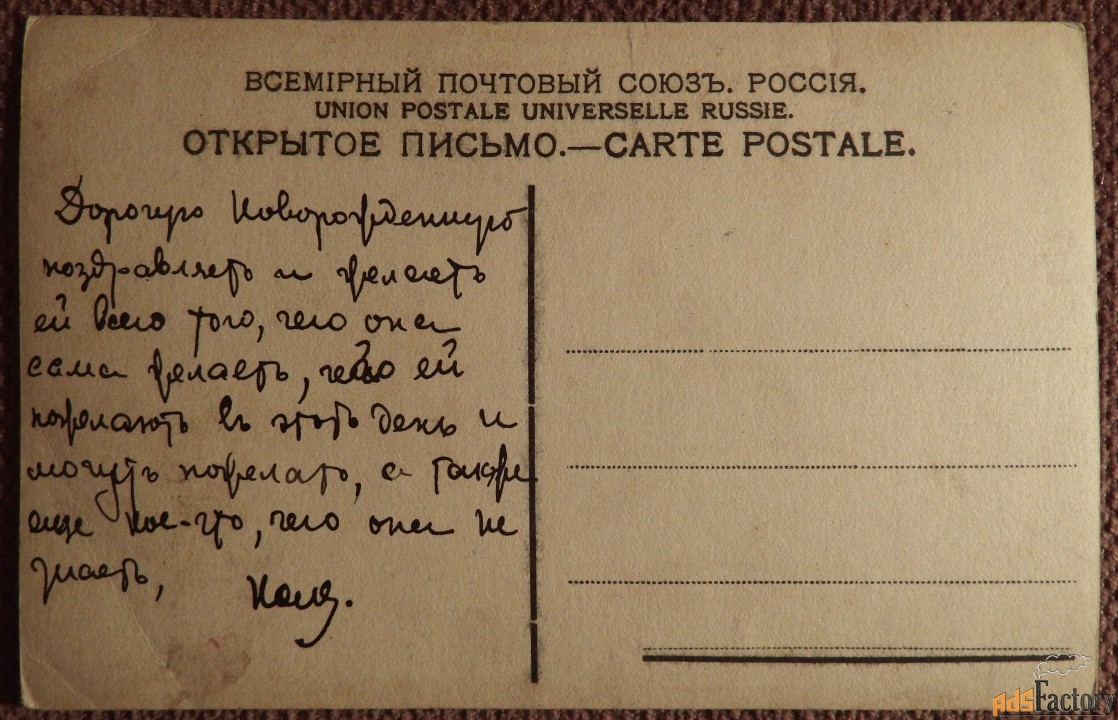 ВСЕМІРНЫЙ ПОЧТОВЫЙ СОЮЗЪ. РОССІЯ.
UNION POSTALE UNIVERSELLE RUSSIE.
ОТКРЫТОЕ ПИСЬМО.—CARTE POSTALE.
Дорогую Новорожденную
поздравляетъ и желаетъ
ей всего того, чего она
сама желаетъ, чего ей
пожелаютъ въ этотъ день и
могутъ пожелать, а также
еще кое-что, чего она не
знаетъ,
Коля.
adsFactory